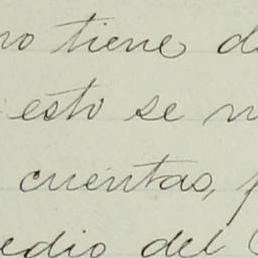 no tiene de
esto se n
cuentas, f
edio del C